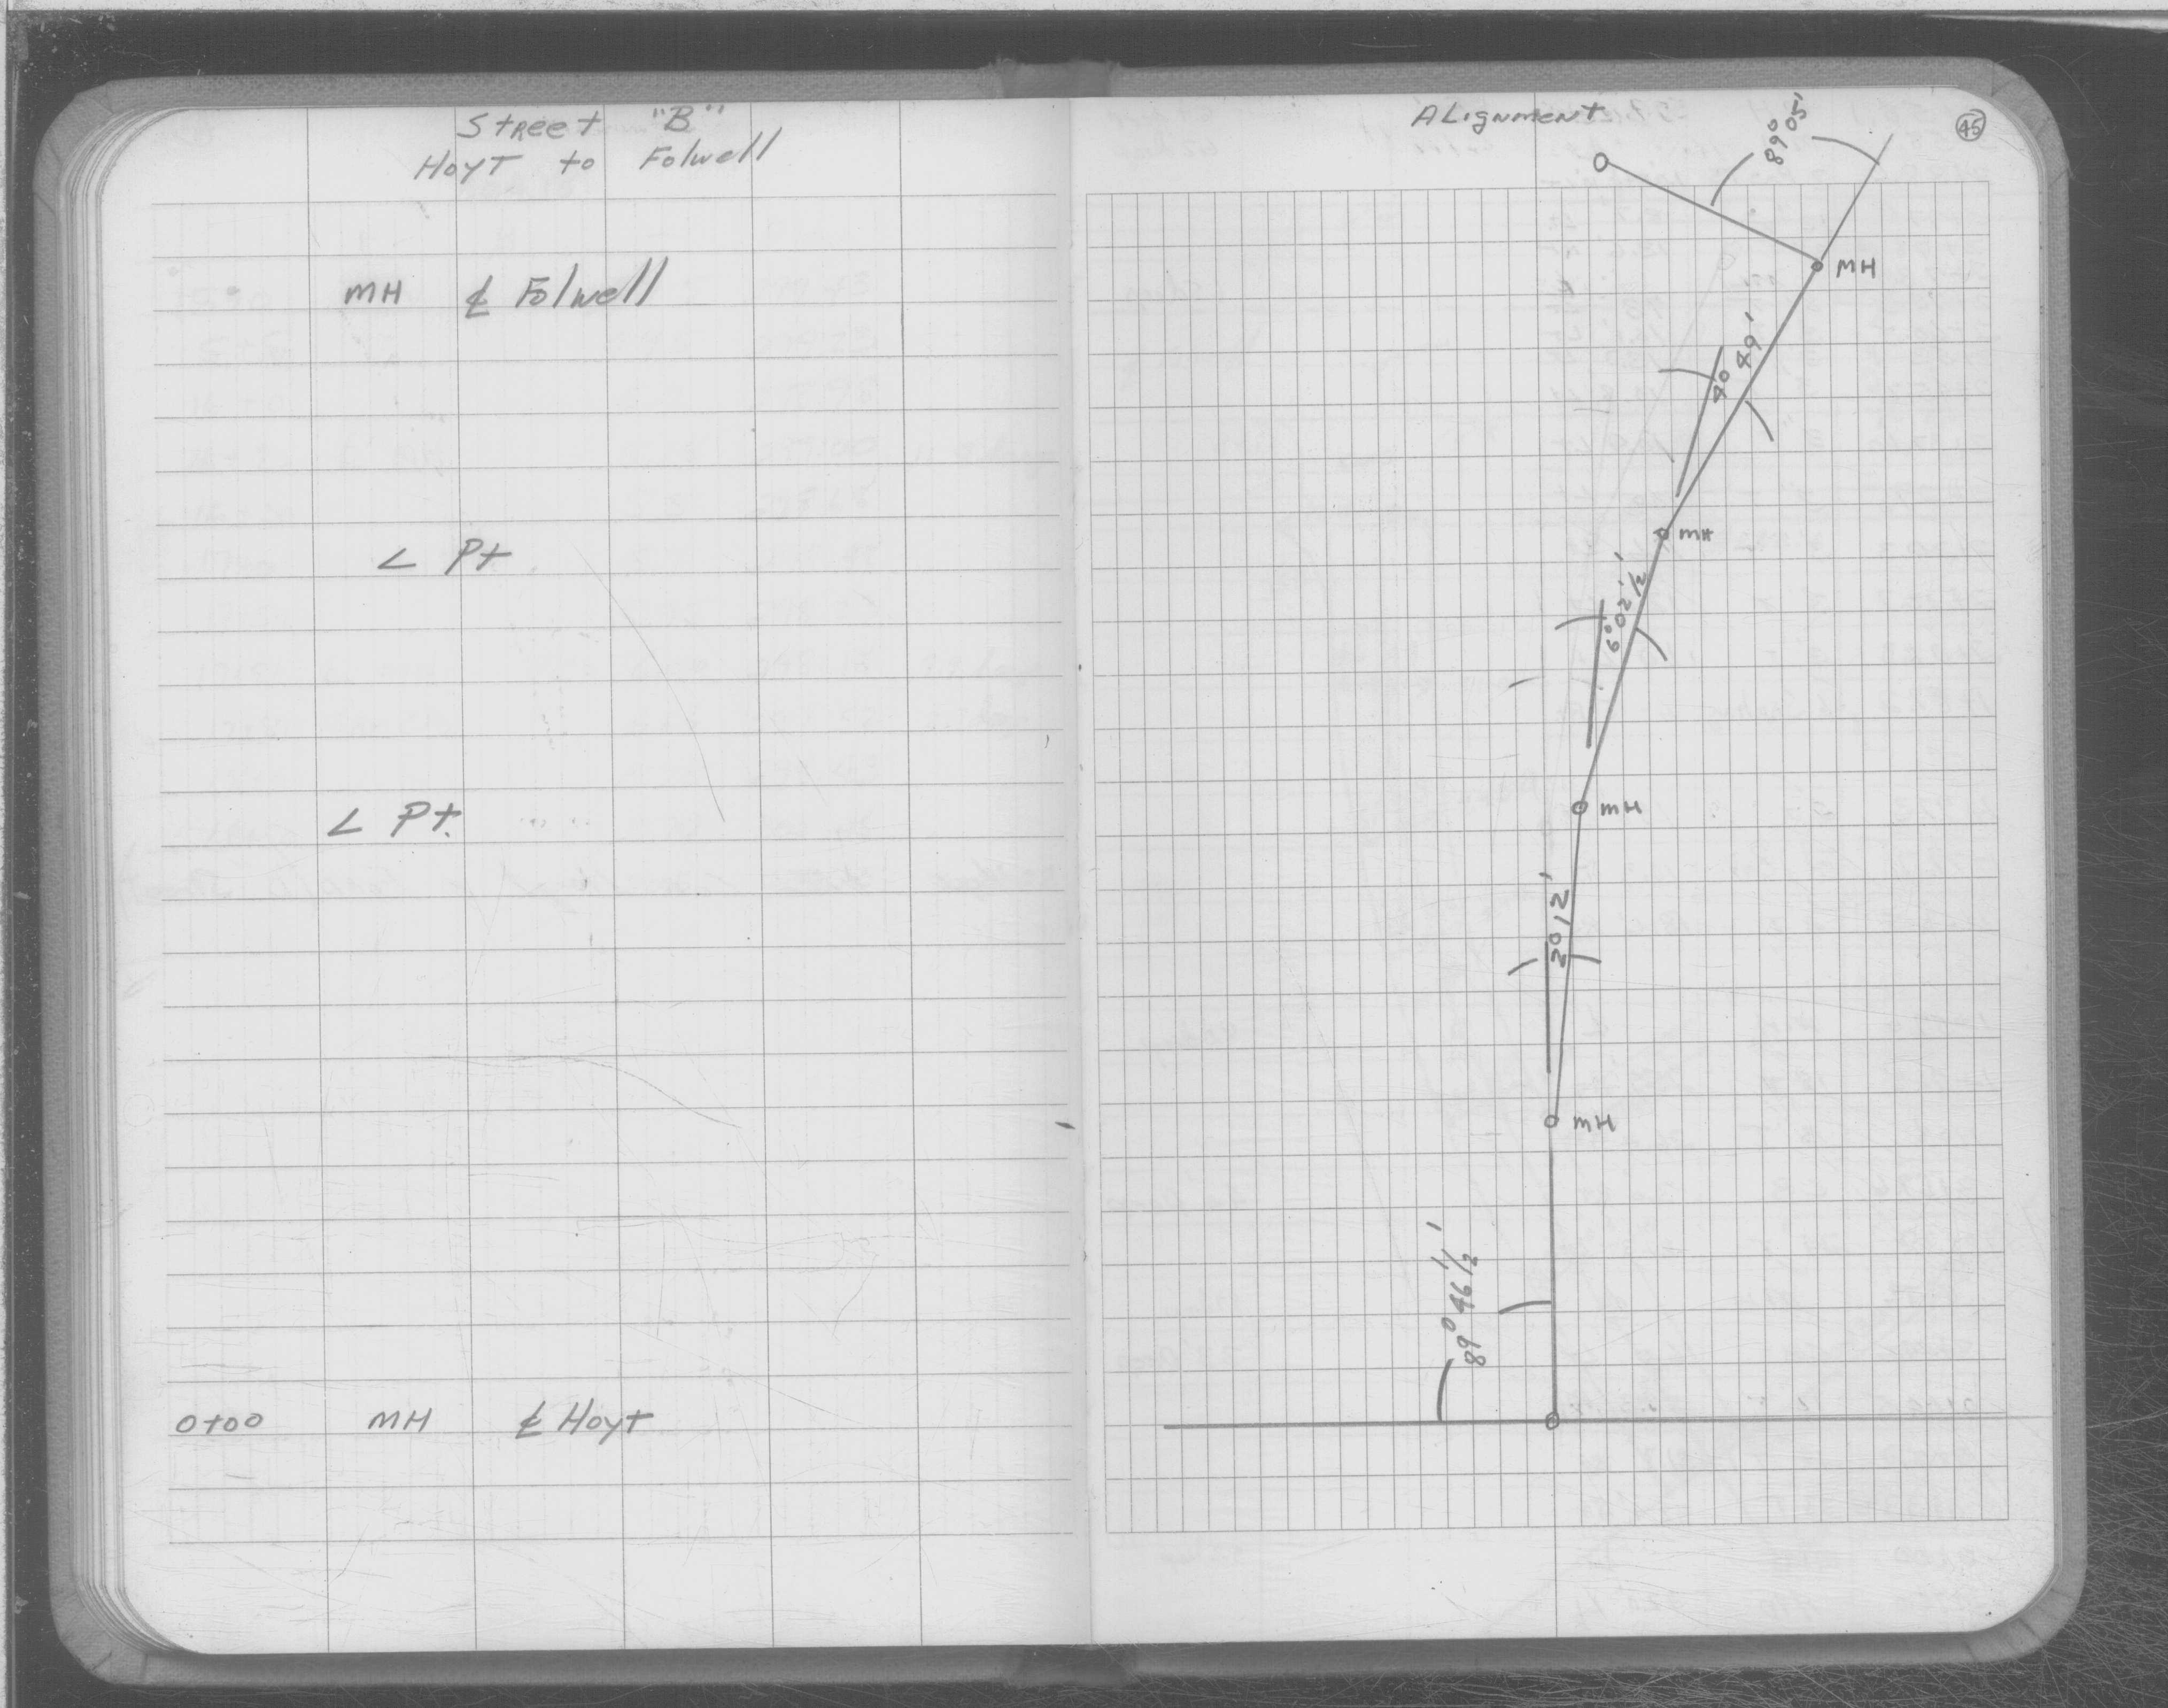 Street "B"
Hoyt to Folwell
MH ℄ Folwell
∠ Pt
∠ Pt.
0+00 MH ℄ Hoyt
ALignment
45
89° 05'
MH
4° 49'
MH
6° 02 1/2'
MH
2° 12'
MH
89° 46 1/2'